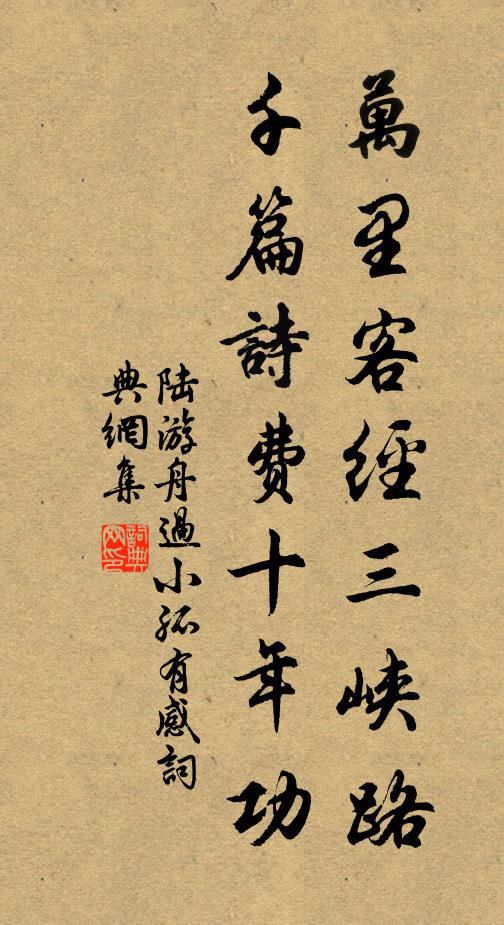 萬里客經三峽路
千篇詩費十年功
陆游舟過小孤有感詞
典網集
詞典网印